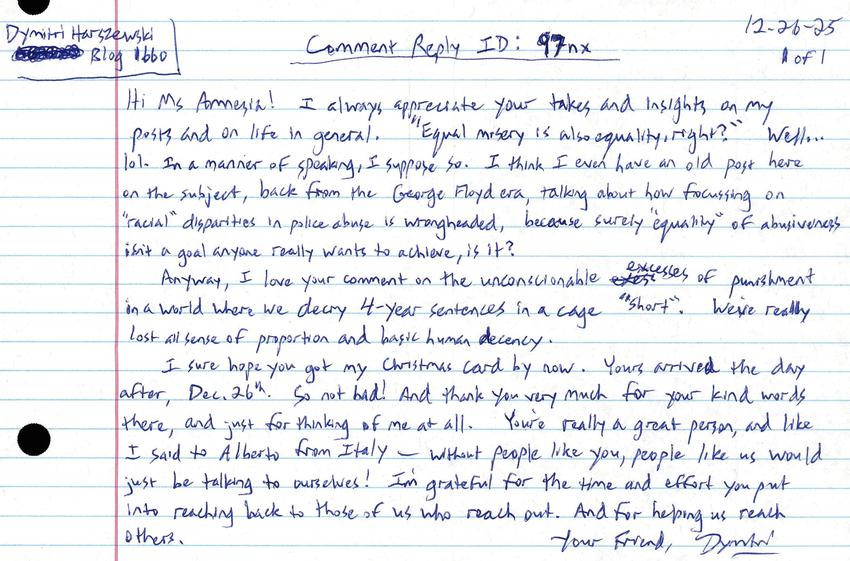 Dymitri Harszewski
Blog 1660
Comment Reply ID: 97nx
12-26-25
1 of 1
Hi Ms Amnesia! I always appreciate your takes and insights on my
posts and on life in general. "Equal misery is also equality, right?" Well...
lol. In a manner of speaking, I suppose so. I think I even have an old post here
on the subject, back from the George Floyd era, talking about how focussing on
"racial" disparities in police abuse is wrongheaded, because surely "equality" of abusiveness
isn't a goal anyone really wants to achieve, is it?
Anyway, I love your comment on the unconscionable excesses of punishment
in a world where we decry 4-year sentences in a cage "short". We're really
lost all sense of proportion and basic human decency.
I sure hope you got my Christmas card by now. Yours arrived the day
after, Dec. 26th. So not bad! And thank you very much for your kind words
there, and just for thinking of me at all. You're really a great person, and like
I said to Alberto from Italy — without people like you, people like us would
just be talking to ourselves! I'm grateful for the time and effort you put
into reaching back to those of us who reach out. And for helping us reach
others.
Your Friend, Dymitri